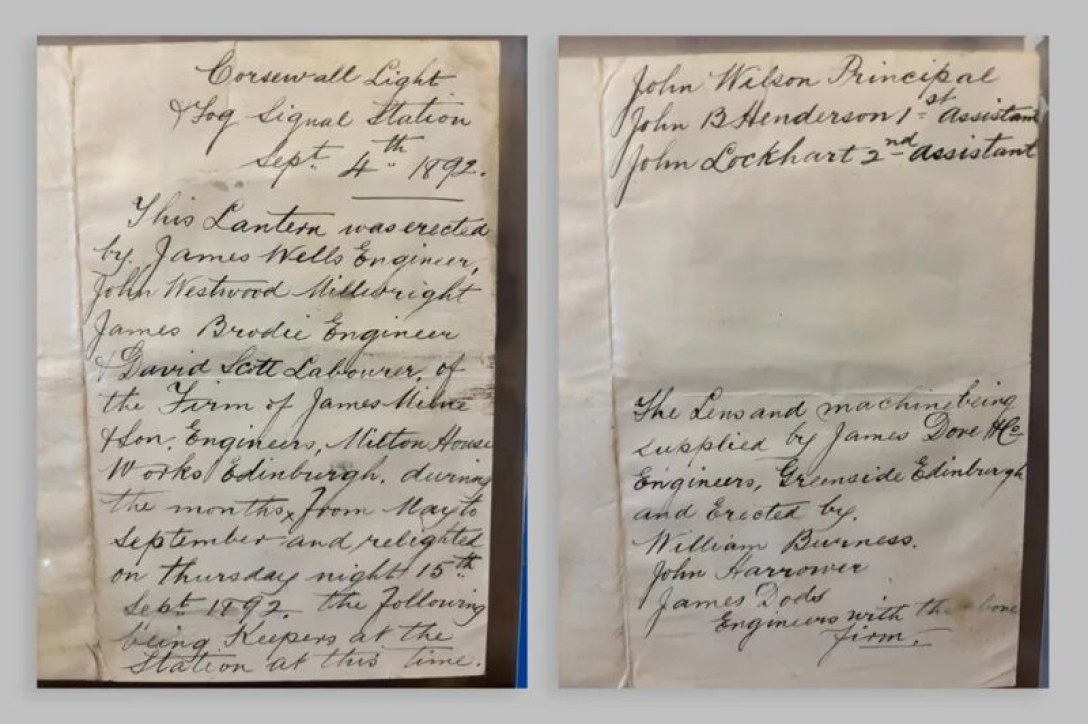 Corsewall Light
& Fog Signal Station
Sept. 4th 1892.
This Lantern was erected
by. James Wells Engineer,
John Westwood Millwright
James Brodie Engineer
& David Scott Labourer, of
the Firm of James Milne
& Son. Engineers, Milton House
Works Edinburgh. during
the months from May to
September and relighted
on thursday night 15th
Sept 1892. the following
being Keepers at the
Station at this time.
John Wilson Principal
John B Henderson 1st assistant
John Lockhart 2nd assistant
The Lens and machine being
supplied by James Dove & Co
Engineers, Greenside Edinburgh
and Erected by.
William Burness.
John Harrower
James Dods
Engineers with the above
firm.